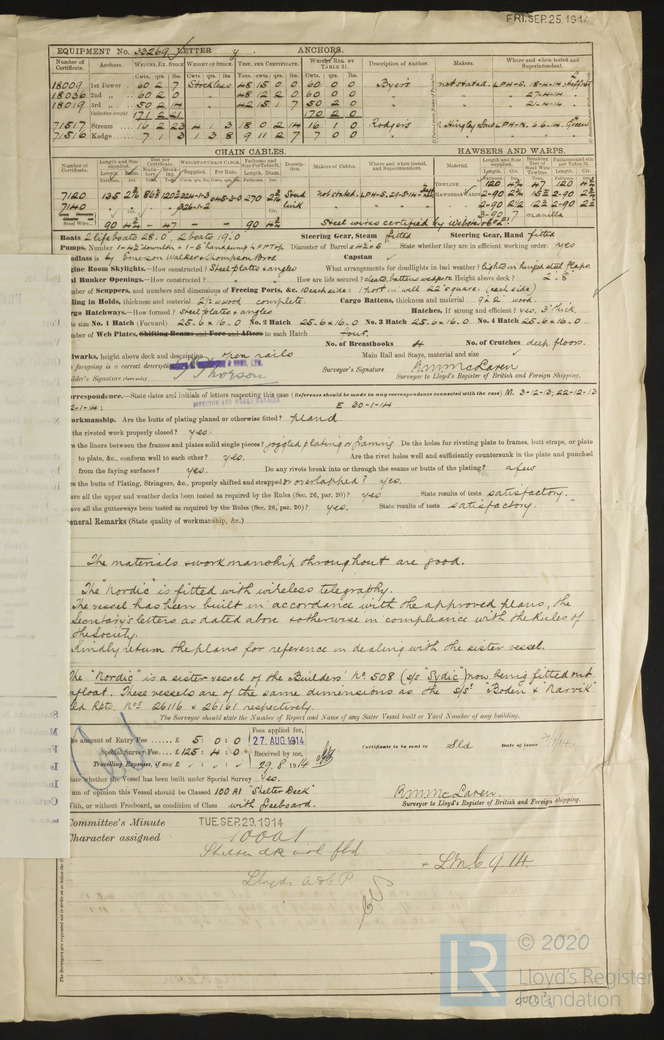 FRI. SEP. 25. 1914
EQUIPMENT No. 33269 LETTER y. ANCHORS.
Number of Certificate. Anchors. WEIGHT, EX. STOCK WEIGHT OF STOCK. TEST, PER CERTIFICATE. WEIGHT REQ. BY TABLE 31. Description of Anchor. Makers. Where and when tested and Superintendent.
Cwts. qrs. lbs. Cwts. qrs. lbs. Tons. cwts. qrs. lbs. Cwts. qrs. lbs.
18009 1st Bower 60 2 7 Stockless 48 15 0 0 60 0 0 Byers not stated. LPH-S. 18-4-14
18036 2nd " 60 2 0 48 2 2 0 60 0 0 " " 27-4-14
18019 3rd " 50 2 14 42 15 1 7 50 2 0 " " 21-4-14
Collective weight 171 2 21 170 2 0
71517 Stream 16 2 23 4 1 3 18 0 2 14 16 1 0 Rodgers N. Hingley & Sons LPH-N. 6-6-14 Green
71516 Kedge 7 1 3 1 3 8 9 11 2 7 7 0 0 " "
CHAIN CABLES. HAWSERS AND WARPS.
Number of Certificate. Length and Size supplied. Test per Certificate. WEIGHT OF CHAIN CABLE. Fathoms and Size Per Table 31. Description. Makers of Cables. Where and when tested, and Superintendent. Material. Length and Size supplied. Breaking Test of Steel Wire Towline. Fathoms and size per Table 31.
7120 135 2 5/16 324-1-3 645-3-0 270 2 5/16 Stud link Not stated. LPH-S. 29-5-14
7140 " " 326-1-2
Steel Wire 90 4 1/2 - 47 - 90 4 1/2 Steel wires certified by Webster & Co Ld.
TOWLINE 120 4 3/4 47 120
HAWSERS & WARPS 2-90 2 3/4 15 1/2 2-90
2-90 2 1/2 12 2-90
3-90 7 manilla
Boats 2 lifeboats 28.0, 2 boats 19.0 Steering Gear, Steam fitted Steering Gear, Hand fitted
Pumps, Number Diameter of Barrel State whether they are in efficient working order yes
Windlass is by Emerson Walker & Thompson Bros Capstan ✓
Engine Room Skylights.—How constructed? Steel plates & angles What arrangements for deadlights in bad weather? lights in hinged steel flaps
Coal Bunker Openings.—How constructed? " " How are lids secured? cleats, battens wedges Height above deck? 2'. 8"
Number of Scuppers, and numbers and dimensions of Freeing Ports, &c. 10 each side: 1 port in well 22" square. (each side)
Ceiling in Holds, thickness and material 2½" wood complete. Cargo Battens, thickness and material 9 x 2" wood.
Cargo Hatchways.—How formed? Steel plates & angles Hatches, If strong and efficient? yes, 3" thick
State size No. 1 Hatch (Forward) 25.6 x 16.0 No. 2 Hatch 25.6 x 16.0 No. 3 Hatch 25.6 x 16.0 No. 4 Hatch 25.6 x 16.0
Number of Web Plates, Shifting Beams and Fore and Afters to each Hatch four.
No. of Breasthooks 4 No. of Crutches deep floors.
Bulwarks, height above deck and description open rails Main Rail and Stays, material and size ✓
The foregoing is a correct description
Builder's Signature (here only) J Thorson
DIRECTOR AND WORKS MANAGER
Surveyor's Signature R. M. McLaren
Surveyor to Lloyd's Register of British and Foreign Shipping.
Correspondence.—State dates and initials of letters respecting this case (Reference should be made in any correspondence connected with the case) M. 3-12-13, 22-12-13
2-1-14; E 30-1-14
Workmanship. Are the butts of plating planed or otherwise fitted? planed
Is the riveted work properly closed? yes.
Are the liners between the frames and plates solid single pieces? joggled plating or framing Do the holes for riveting plate to frames, butt straps, or plate
to plate, &c., conform well to each other? yes. Are the rivet holes well and sufficiently countersunk in the plate and punched
from the faying surfaces? yes. Do any rivets break into or through the seams or butts of the plating? a few
Are the butts of Plating, Stringers, &c., properly shifted and strapped or overlapped? yes.
Have all the upper and weather decks been tested as required by the Rules (Sec. 26, par. 20)? yes State results of tests satisfactory.
Have all the gutterways been tested as required by the Rules (Sec. 26, par. 20)? yes. State results of tests satisfactory.
General Remarks (State quality of workmanship, &c.)
The materials & workmanship throughout are good.
The "Nordic" is fitted with wireless telegraphy.
The vessel has been built in accordance with the approved plans, the
Secretary's letters as dated above & otherwise in compliance with the Rules of
the Society.
Kindly return the plans for reference in dealing with the sister vessel.
The "Nordic" is a sister vessel of the Builders' No. 508 (s/s "Sydic") now being fitted out
afloat. These vessels are of the same dimensions as the s/s "Boden" & "Narvik"
Sld Rpts. Nos 26116 & 26161 respectively.
The Surveyor should state the Number of Report and Name of any Sister Vessel built or Yard Number of any building.
The amount of Entry Fee £ 5 : 0 : 0 Fees applied for, 27 AUG. 1914
Special Survey Fee £ 125 : 4 : 0 Received by me,
Travelling Expenses, if any £ : : 29.8.1914
Certificate to be sent to Sld Date of issue
State whether the Vessel has been built under Special Survey Yes.
I am of opinion this Vessel should be Classed 100 A1 "Shelter Deck"
With, or without Freeboard, as condition of Class with freeboard.
R. M. McLaren.
Surveyor to Lloyd's Register of British and Foreign Shipping.
Committee's Minute TUE. SEP. 29. 1914
Character assigned 100A1
Shelter dk wol fbd
+ LMC 9.14.
Lloyds A&CP
The Surveyors are requested not to write on or below the space for Committee's Minute.
LR
© 2020
Lloyd's Register
Foundation